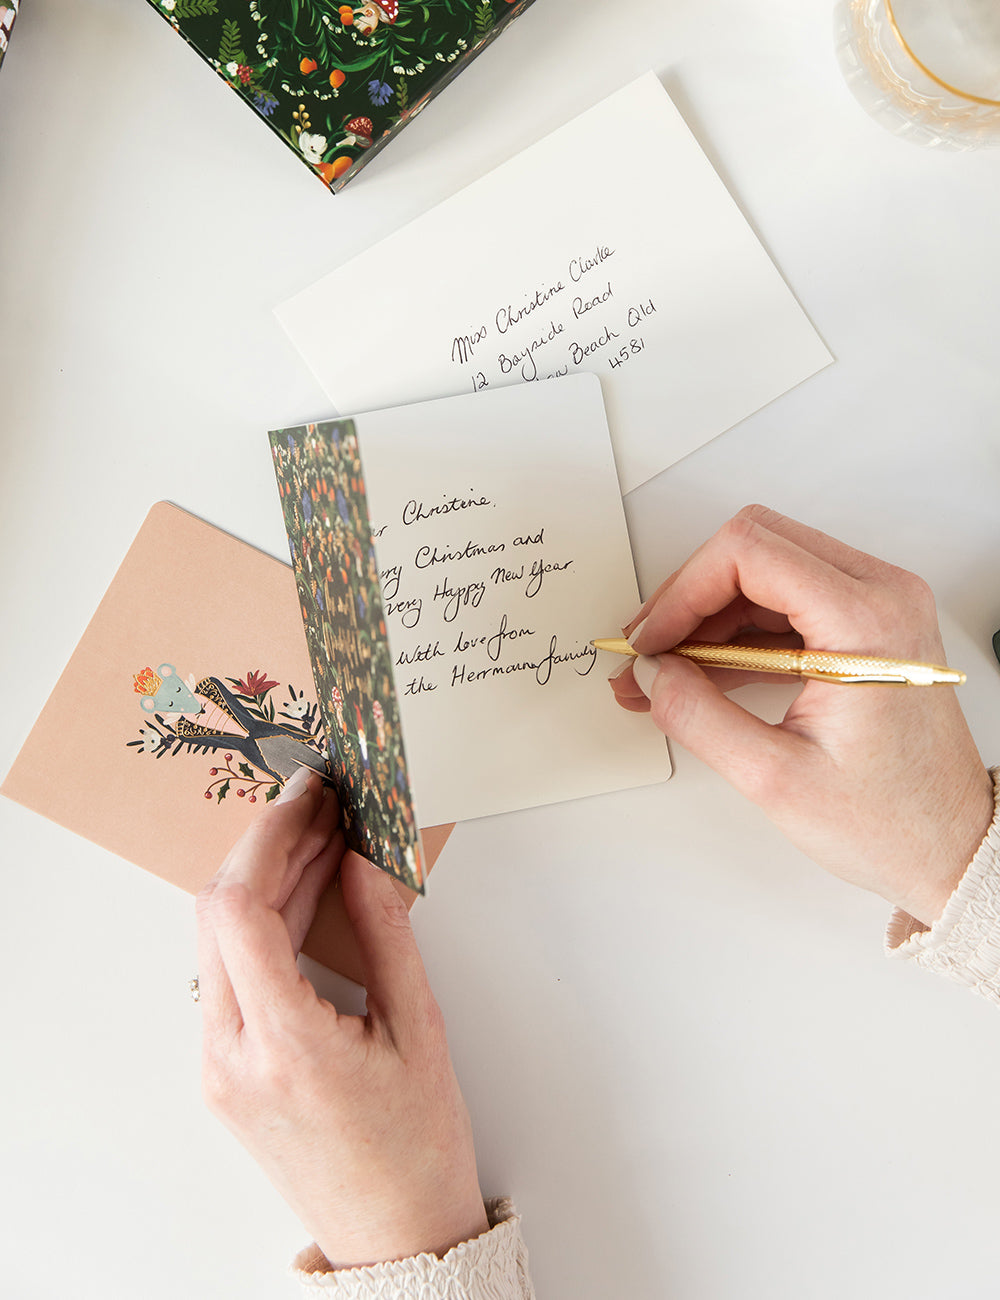 Miss Christine Clarke
12 Bayside Road
Beach Qld
4581
Christine,
Christmas and
very Happy New Year
With love from
the Herrmann family